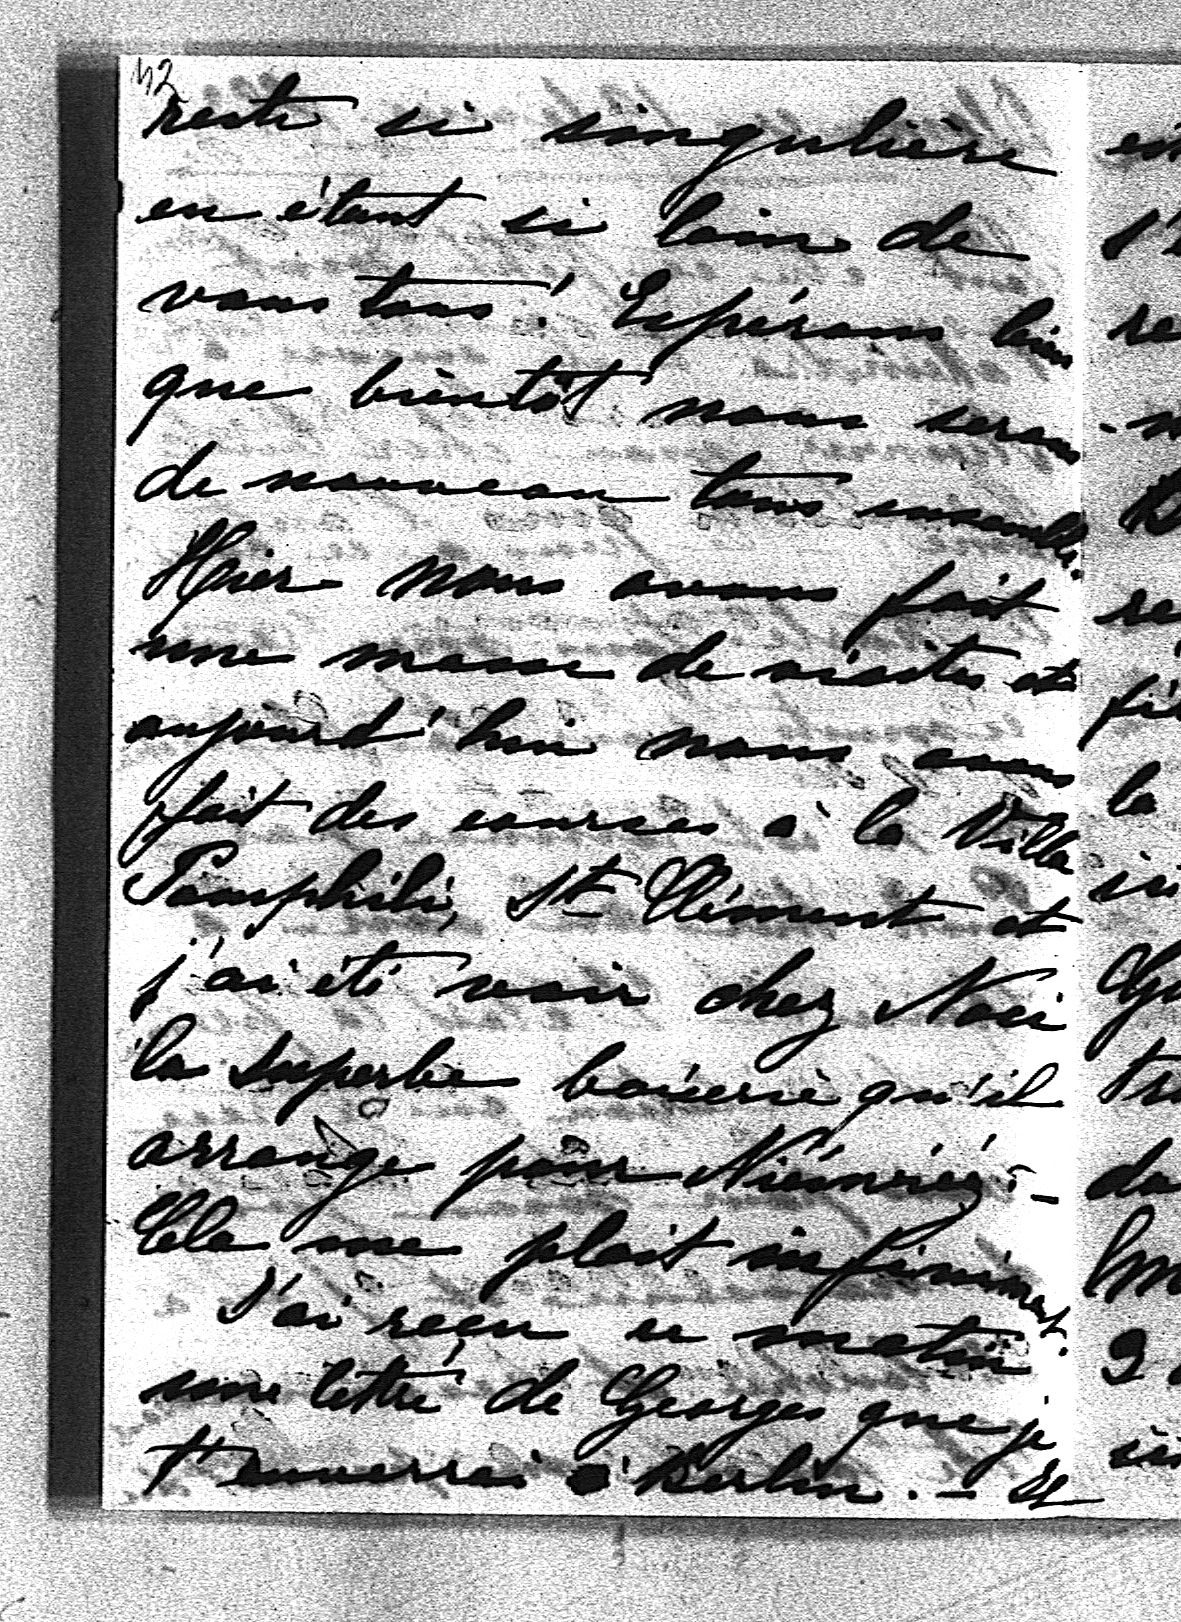 42
reste si singulière
en étant si loin de
vous tous! Espérons bien
que bientôt nous serons
de nouveau tous ensemble.
Hier nous avons fait
une masse de visites et
aujourd'hui nous avons
fait des courses à la Villa
Pamphili, St Clément et
j'ai été voir chez Noci
la superbe boiserie qu'il
arrange pour
Cela me plait infiniment.
J'ai reçu ce matin
une lettre de Georges que je
t'enverrai à Berlin. – Il